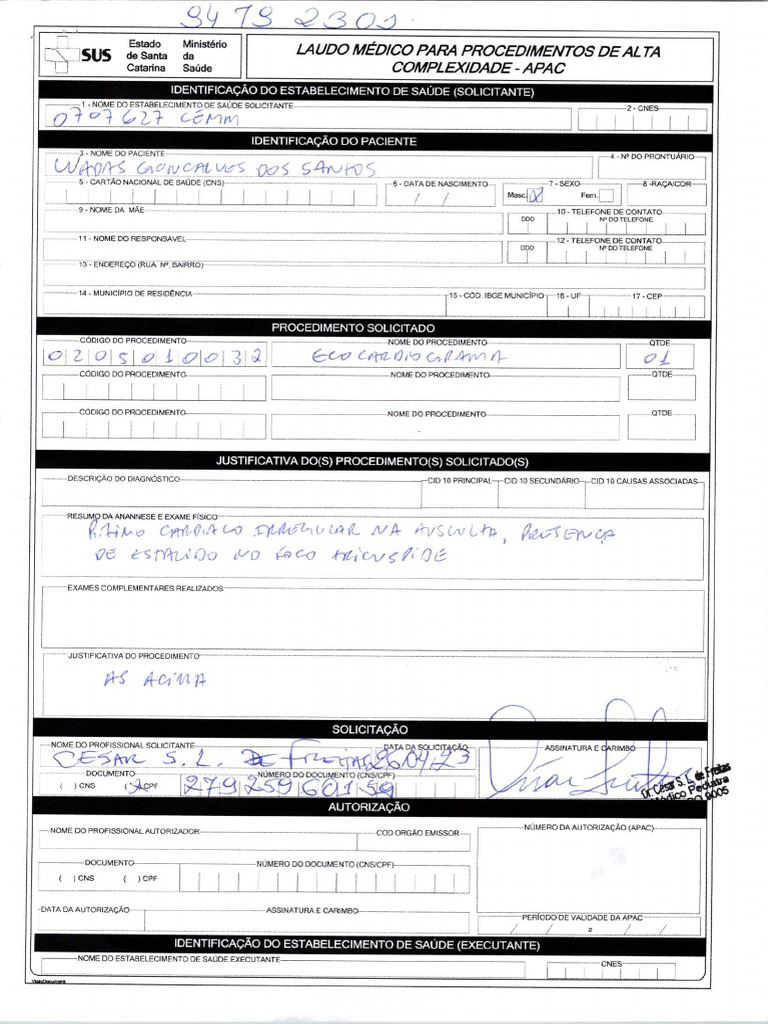 9479 2301
SUS
Estado de Santa Catarina
Ministério da Saúde
LAUDO MÉDICO PARA PROCEDIMENTOS DE ALTA COMPLEXIDADE - APAC
IDENTIFICAÇÃO DO ESTABELECIMENTO DE SAÚDE (SOLICITANTE)
1 - NOME DO ESTABELECIMENTO DE SAÚDE SOLICITANTE
2 - CNES
0707627 CEMM
IDENTIFICAÇÃO DO PACIENTE
3 - NOME DO PACIENTE
4 - Nº DO PRONTUÁRIO
GONCALVES DOS SANTOS
5 - CARTÃO NACIONAL DE SAÚDE (CNS)
6 - DATA DE NASCIMENTO
7 - SEXO
8 - RAÇA/COR
/ /
Masc. X Fem.
9 - NOME DA MÃE
10 - TELEFONE DE CONTATO
DDD Nº DO TELEFONE
11 - NOME DO RESPONSÁVEL
12 - TELEFONE DE CONTATO
DDD Nº DO TELEFONE
13 - ENDEREÇO (RUA, Nº, BAIRRO)
14 - MUNICÍPIO DE RESIDÊNCIA
15 - CÓD. IBGE MUNICÍPIO
16 - UF
17 - CEP
PROCEDIMENTO SOLICITADO
CÓDIGO DO PROCEDIMENTO
NOME DO PROCEDIMENTO
QTDE
0205010032 ECOCARDIOGRAMA 01
CÓDIGO DO PROCEDIMENTO
NOME DO PROCEDIMENTO
QTDE
CÓDIGO DO PROCEDIMENTO
NOME DO PROCEDIMENTO
QTDE
JUSTIFICATIVA DO(S) PROCEDIMENTO(S) SOLICITADO(S)
DESCRIÇÃO DO DIAGNÓSTICO
CID 10 PRINCIPAL
CID 10 SECUNDÁRIO
CID 10 CAUSAS ASSOCIADAS
RESUMO DA ANANNESE E EXAME FÍSICO
RITIMO CARDIACO IRREGULAR NA AUSCULTA, PRETENÇA
DE ESTALIDO NO FOCO TRICUSPIDE
EXAMES COMPLEMENTARES REALIZADOS
JUSTIFICATIVA DO PROCEDIMENTO
AS ACIMA
SOLICITAÇÃO
NOME DO PROFISSIONAL SOLICITANTE
DATA DA SOLICITAÇÃO
ASSINATURA E CARIMBO
CESAR S. L. DE FREITAS 26.04.23
DOCUMENTO
NÚMERO DO DOCUMENTO (CNS/CPF)
( ) CNS (X) CPF 27925960159
Dr. César S. L. de Freitas
Médico Pediatra
9005
AUTORIZAÇÃO
NOME DO PROFISSIONAL AUTORIZADOR
COD ORGÃO EMISSOR
NÚMERO DA AUTORIZAÇÃO (APAC)
DOCUMENTO
NÚMERO DO DOCUMENTO (CNS/CPF)
( ) CNS ( ) CPF
DATA DA AUTORIZAÇÃO
ASSINATURA E CARIMBO
PERÍODO DE VALIDADE DA APAC
/ / a / /
IDENTIFICAÇÃO DO ESTABELECIMENTO DE SAÚDE (EXECUTANTE)
NOME DO ESTABELECIMENTO DE SAÚDE EXECUTANTE
CNES